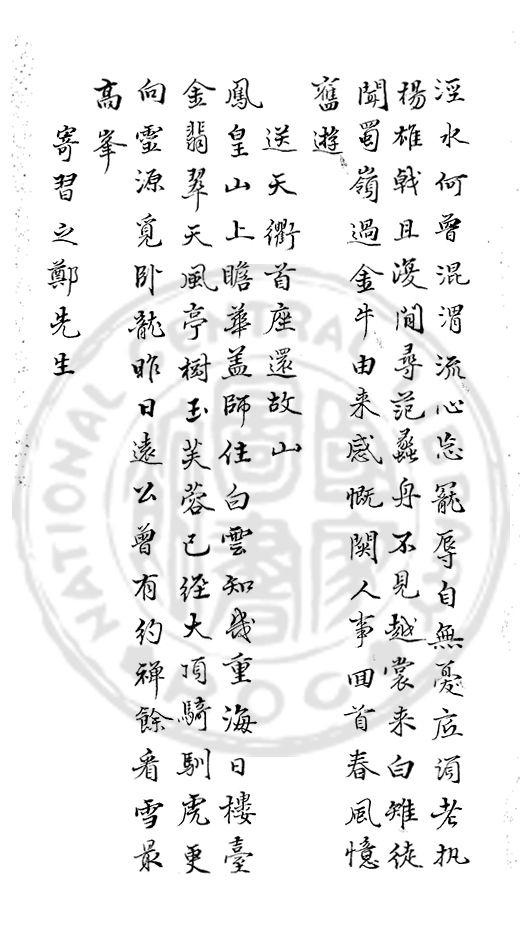 涇水何曾混渭流心忘寵辱自無憂底須老執
楊雄戟且漫間尋范蠡舟不見越裳来白雉徒
聞蜀嶺過金牛由来感慨関人事回首春風憶
舊遊
送天衢首座還故山
鳳皇山上瞻華盖師住白雲知幾重海日樓臺
金翡翠天風亭樹玉芙蓉已経大頂騎馴虎更
向靈源覓卧龍昨日遠公曾有約禅餘看雪最
高峯
寄習之鄭先生
NATIONAL CENTRAL